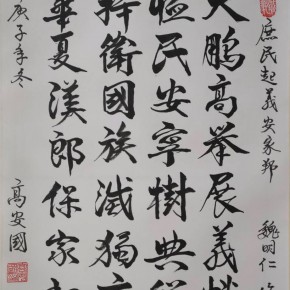 庶民起義安家邦 魏明仁
大鵬高舉展義
民安寧樹典
捍衛國族滅獨
華夏漢郎保家
庚子年冬
高安國